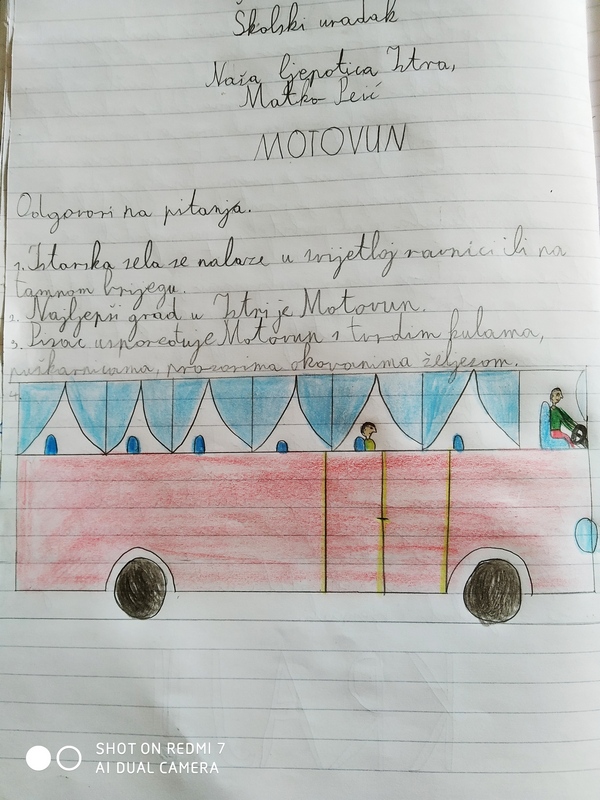 Školski uradak
Naša ljepotica Istra,
Matko Peić
MOTOVUN
Odgovori na pitanja.
1. Istarska sela se nalaze u svijetloj ravnici ili na
tamnom brijegu.
2. Najljepši grad u Istri je Motovun.
3. Pisac uspoređuje Motovun s tvrdim kulama,
puškarnicama, prozorima okovanima željezom.
4.
SHOT ON REDMI 7
AI DUAL CAMERA